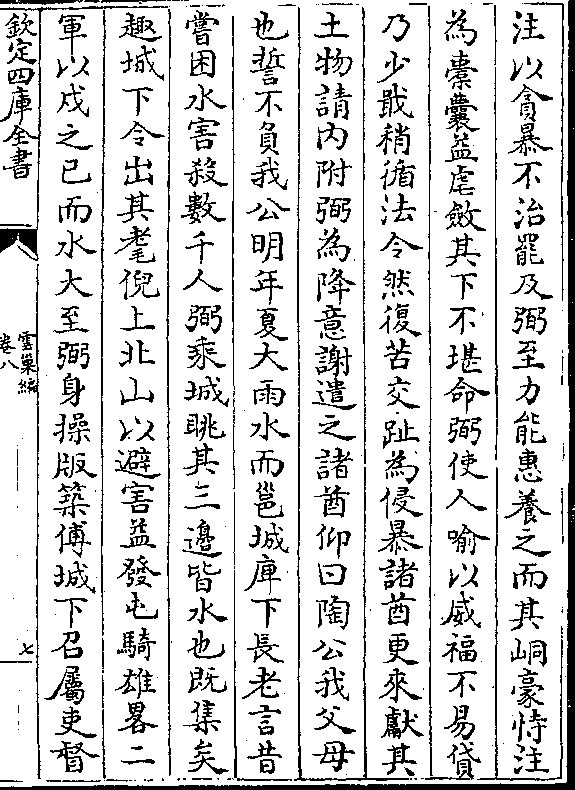 注以貪暴不治罷及弼至力能惠養之而其峒豪恃注
為橐囊益虐斂其下不堪命弼使人喻以威福不易貸
乃少戢稍循法令然復苦交趾為侵暴諸酋更來獻其
土物請内附弼為降意謝遣之諸酋仰曰陶公我父母
也誓不負我公明年夏大雨水而邕城庫下長老言昔
嘗困水害殺數千人弼乘城眺其三邉皆水也既集矣
趣城下令出其耄倪上北山以避害益發屯騎雄畧二
軍以戍之已而水大至弼身操版築傅城下召屬吏督
欽定四庫全書
雲巢編
卷八
七